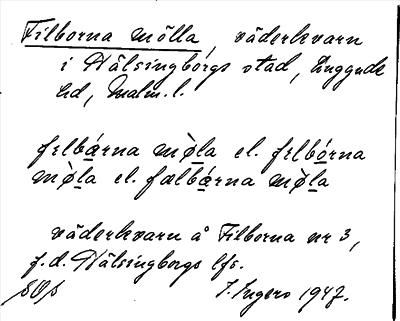 Filborna mölla, väderkvarn
i Hälsingborgs stad, Luggude
hd, Malm. l.
felbárna mø̀la el. felbórna
mø̀la el. fælbárna mø̀la
väderkvarn å Filborna nr 3,
f. d. Hälsingborgs lfs.
I. Ingers 1947.